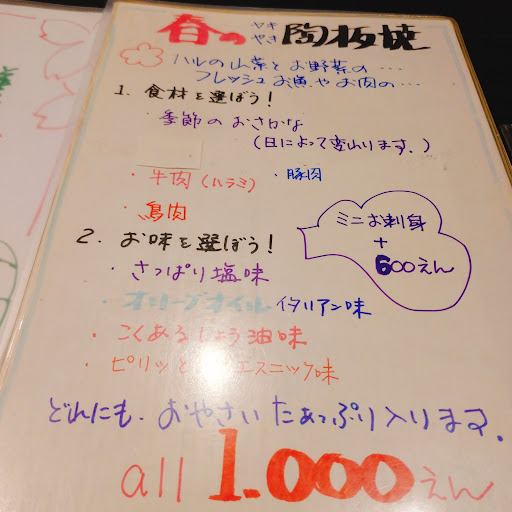 春の ヤキ やき 陶板焼
ハルの山菜とお野菜の…
フレッシュお魚やお肉の…
1. 食材を選ぼう!
・季節のおさかな
(日によって変わります。)
・牛肉(ハラミ) ・豚肉
・鳥肉
2. お味を選ぼう!
・さっぱり塩味
・オリーブオイルイタリアン味
・こくあるしょう油味
・ピリッと エスニック味
ミニお刺身
+
600えん
どれにも、おやさいたぁっぷり入ります。
all 1.000えん